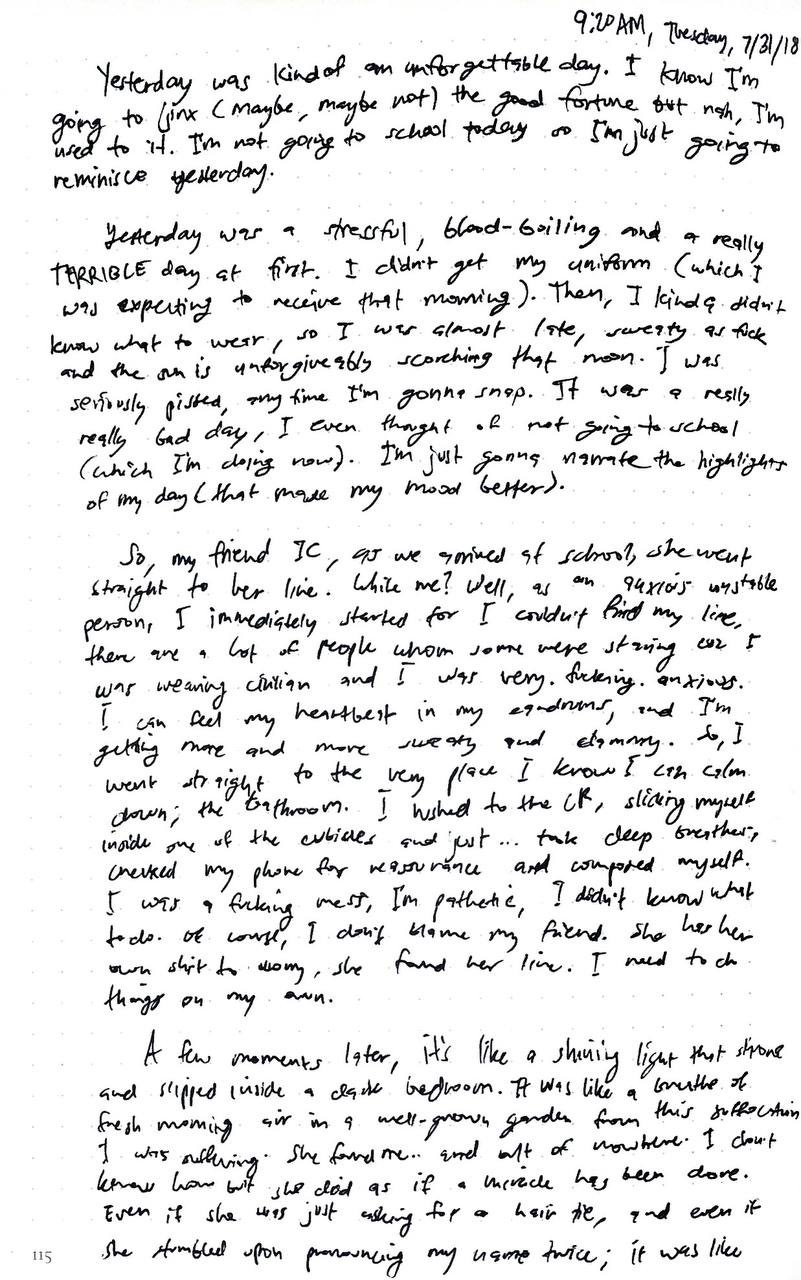 9:20AM, Tuesday, 7/31/18
Yesterday was kindof an unforgettable day. I know I'm
going to jinx (maybe, maybe not) the good fortune but nah, I'm
used to it. I'm not going to school today so I'm just going to
reminisce yesterday.
Yesterday was a stressful, blood-boiling and a really
TERRIBLE day at first. I didn't get my uniform (which I
was expecting to receive that morning). Then, I kinda didn't
know what to wear, so I was almost late, sweaty as fuck
and the sun is unforgiveably scorching that noon. I was
seriously pissed, anytime I'm gonna snap. It was a really
really bad day, I even thought of not going to school
(which I'm doing now). I'm just gonna narrate the highlights
of my day (that made my mood better).
So, my friend IC, as we arrived at school, she went
straight to her line. While me? Well, as an anxious unstable
person, I immediately started for I couldn't find my line,
there are a lot of people whom some were staring coz I
was wearing civilian and I was very. fucking. anxious.
I can feel my heartbeat in my eardrums, and I'm
getting more and more sweaty and clammy. So, I
went straight to the very place I know I can calm
down; the bathroom. I rushed to the CR, sliding myself
inside one of the cubicles and just... took deep breathes,
checked my phone for reassurance and composed myself.
I was a fucking mess, I'm pathetic, I didn't know what
to do. Of course, I don't blame my friend. She has her
own shit to worry, she found her line. I need to do
things on my own.
A few moments later, it's like a shining light that strone
and slipped inside a dark bedroom. It was like a breathe of
fresh morning air in a well-grown garden from this suffocation
I was suffering. She found me.. and out of nowhere. I don't
know how but she did as if a miracle has been done.
Even if she was just asking for a hair tie, and even if
she stumbled upon pronouncing my name twice; it was like
115